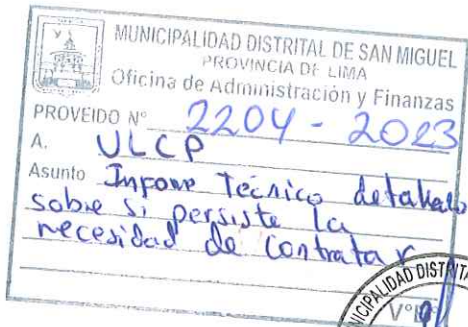 MUNICIPALIDAD DISTRITAL DE SAN MIGUEL
PROVINCIA DE LIMA
Oficina de Administración y Finanzas
PROVEIDO N° 2204 - 2023
A. ULCP
Asunto Informe Técnico detallado
sobre si persiste la
necesidad de contratar
MUNICIPALIDAD DISTRITA
V°B°